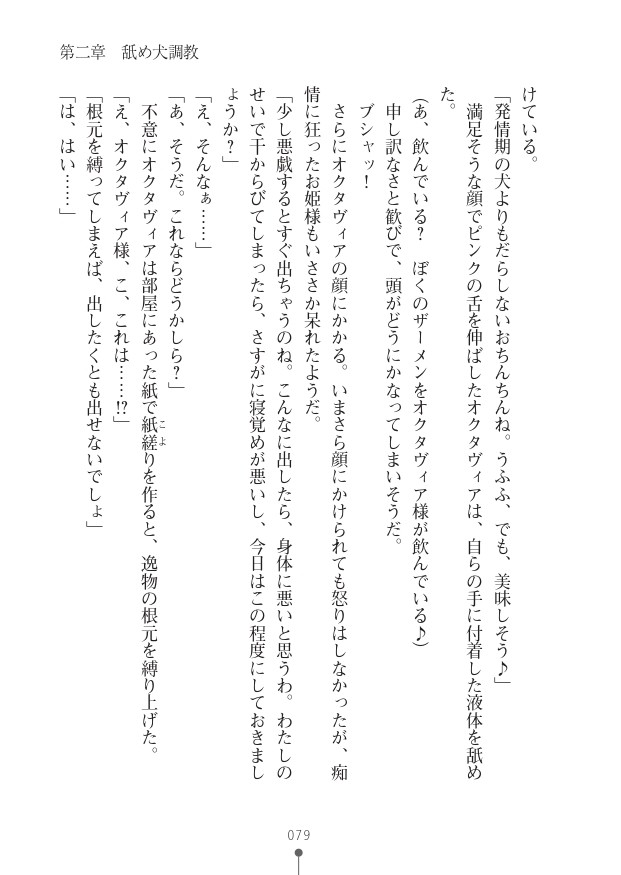 第二章　舐め犬調教
けている。
「発情期の犬よりもだらしないおちんちんね。うふふ、でも、美味しそう♪」
満足そうな顔でピンクの舌を伸ばしたオクタヴィアは、自らの手に付着した液体を舐め
た。
(あ、飲んでいる？　ぼくのザーメンをオクタヴィア様が飲んでいる♪)
申し訳なさと歓びで、頭がどうにかなってしまいそうだ。
ブシャッ！
さらにオクタヴィアの顔にかかる。いまさら顔にかけられても怒りはしなかったが、痴
情に狂ったお姫様もいささか呆れたようだ。
「少し悪戯するとすぐ出ちゃうのね。こんなに出したら、身体に悪いと思うわ。わたしの
せいで干からびてしまったら、さすがに寝覚めが悪いし、今日はこの程度にしておきまし
ょうか？」
「え、そんなぁ……」
「あ、そうだ。これならどうかしら？」
不意にオクタヴィアは部屋にあった紙で紙縒りを作ると、逸物の根元を縛り上げた。
こよ
「え、オクタヴィア様、こ、これは……!?」
「根元を縛ってしまえば、出したくとも出せないでしょ」
「は、はい……」
079